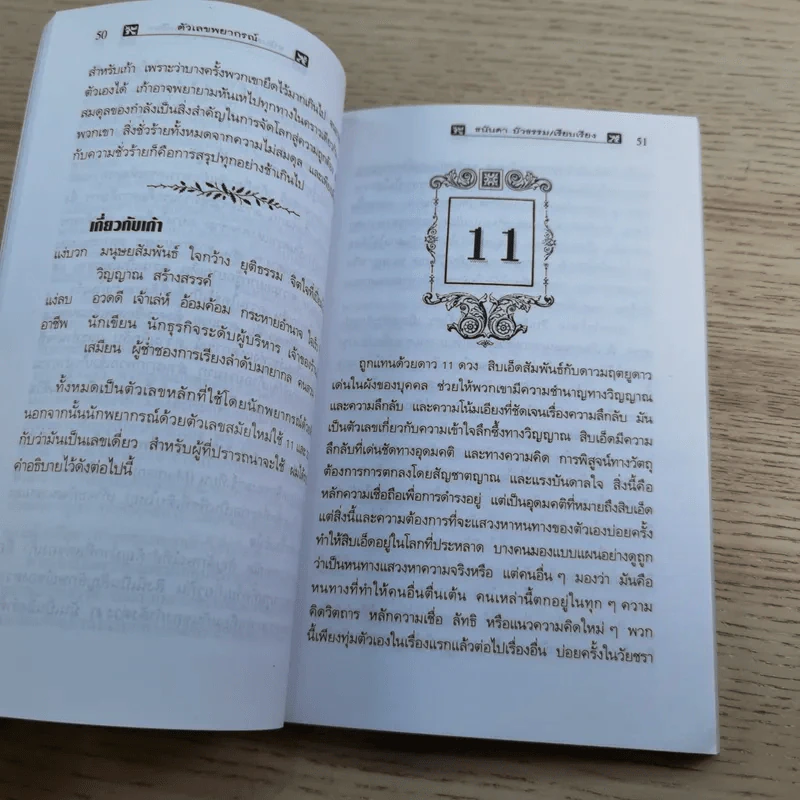 50 ตัวเลขพยากรณ์
สำหรับเก้า เพราะว่าบางครั้งพวกเขายึดไว้มากเกินไป
ตัวเองได้ เก้าอาจพยายามหันเหไปทุกทางในคราวเดียว
สมดุลของกำลังเป็นสิ่งสำคัญในการจัดโลกสู่ความถูกต้อง
พวกเขา สิ่งชั่วร้ายทั้งหมดจากความไม่สมดุล
กับความชั่วร้ายก็คือการสรุปทุกอย่างช้าเกินไป
เกี่ยวกับเก้า
แง่บวก มนุษยสัมพันธ์ ใจกว้าง ยุติธรรม
วิญญาณ สร้างสรรค์
แง่ลบ อวดดี เจ้าเล่ห์ อ้อมค้อม กระหายอำนาจ
อาชีพ นักเขียน นักธุรกิจระดับผู้บริหาร
เสมียน ผู้ช่ำชองการเรียงลำดับมายากล
ทั้งหมดเป็นตัวเลขหลักที่ใช้โดยนักพยากรณ์
นอกจากนั้นนักพยากรณ์ด้วยตัวเลขสมัยใหม่ใช้ 11
กับว่ามันเป็นเลขเดี่ยว สำหรับผู้ที่ปรารถนาจะใช้
คำอธิบายไว้ดังต่อไปนี้
ธนันดา บัวธรรม/เรียบเรียง 51
11
ถูกแทนด้วยดาว 11 ดวง สิบเอ็ดสัมพันธ์กับดาวมฤตยูดาว
เด่นในผังของบุคคล ช่วยให้พวกเขามีความชำนาญทางวิญญาณ
และความลึกลับ และความโน้มเอียงที่ชัดเจนเรื่องความลึกลับ มัน
เป็นตัวเลขเกี่ยวกับความเข้าใจลึกซึ้งทางวิญญาณ สิบเอ็ดมีความ
ลึกลับที่เด่นชัดทางอุดมคติ และทางความคิด การพิสูจน์ทางวัตถุ
ต้องการการตกลงโดยสัญชาตญาณ และแรงบันดาลใจ สิ่งนี้คือ
หลักความเชื่อถือเพื่อการดำรงอยู่ แต่เป็นอุดมคติที่หมายถึงสิบเอ็ด
แต่สิ่งนี้และความต้องการที่จะแสวงหาหนทางของตัวเองบ่อยครั้ง
ทำให้สิบเอ็ดอยู่ในโลกที่ประหลาด บางคนมองแบบแผนอย่างดูถูก
ว่าเป็นหนทางแสวงหาความจริงหรือ แต่คนอื่น ๆ มองว่า มันคือ
หนทางที่ทำให้คนอื่นตื่นเต้น คนเหล่านี้ตกอยู่ในทุก ๆ ความ
คิดวิตถาร หลักความเชื่อ ลัทธิ หรือแนวความคิดใหม่ ๆ พวก
นี้เพียงทุ่มตัวเองในเรื่องแรกแล้วต่อไปเรื่องอื่น บ่อยครั้งในวัยชรา